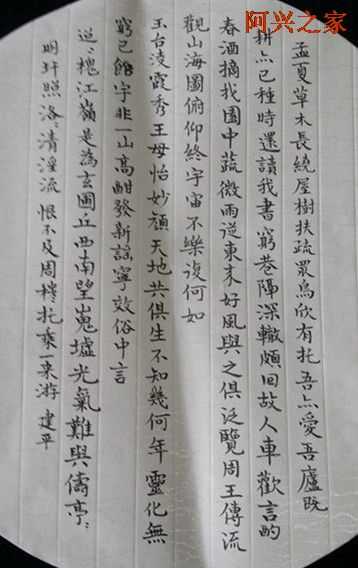 阿兴之家
孟夏草木長繞屋樹扶疏眾鳥欣有托吾亦愛吾廬既
耕亦已種時還讀我書窮巷隔深轍頗回故人車歡言酌
春酒摘我園中蔬微雨從東來好風與之俱泛覽周王傳流
觀山海圖俯仰終宇宙不樂復何如
玉台淩霞秀王母怡妙顏天地共俱生不知幾何年靈化無
窮已館宇非一山高酣發新謠寧效俗中言
迢:槐江嶺是為玄圃丘西南望崑墟光氣難與儔亭:
明玕照洛:清淫流恨不及周穆托乘一來游 建平